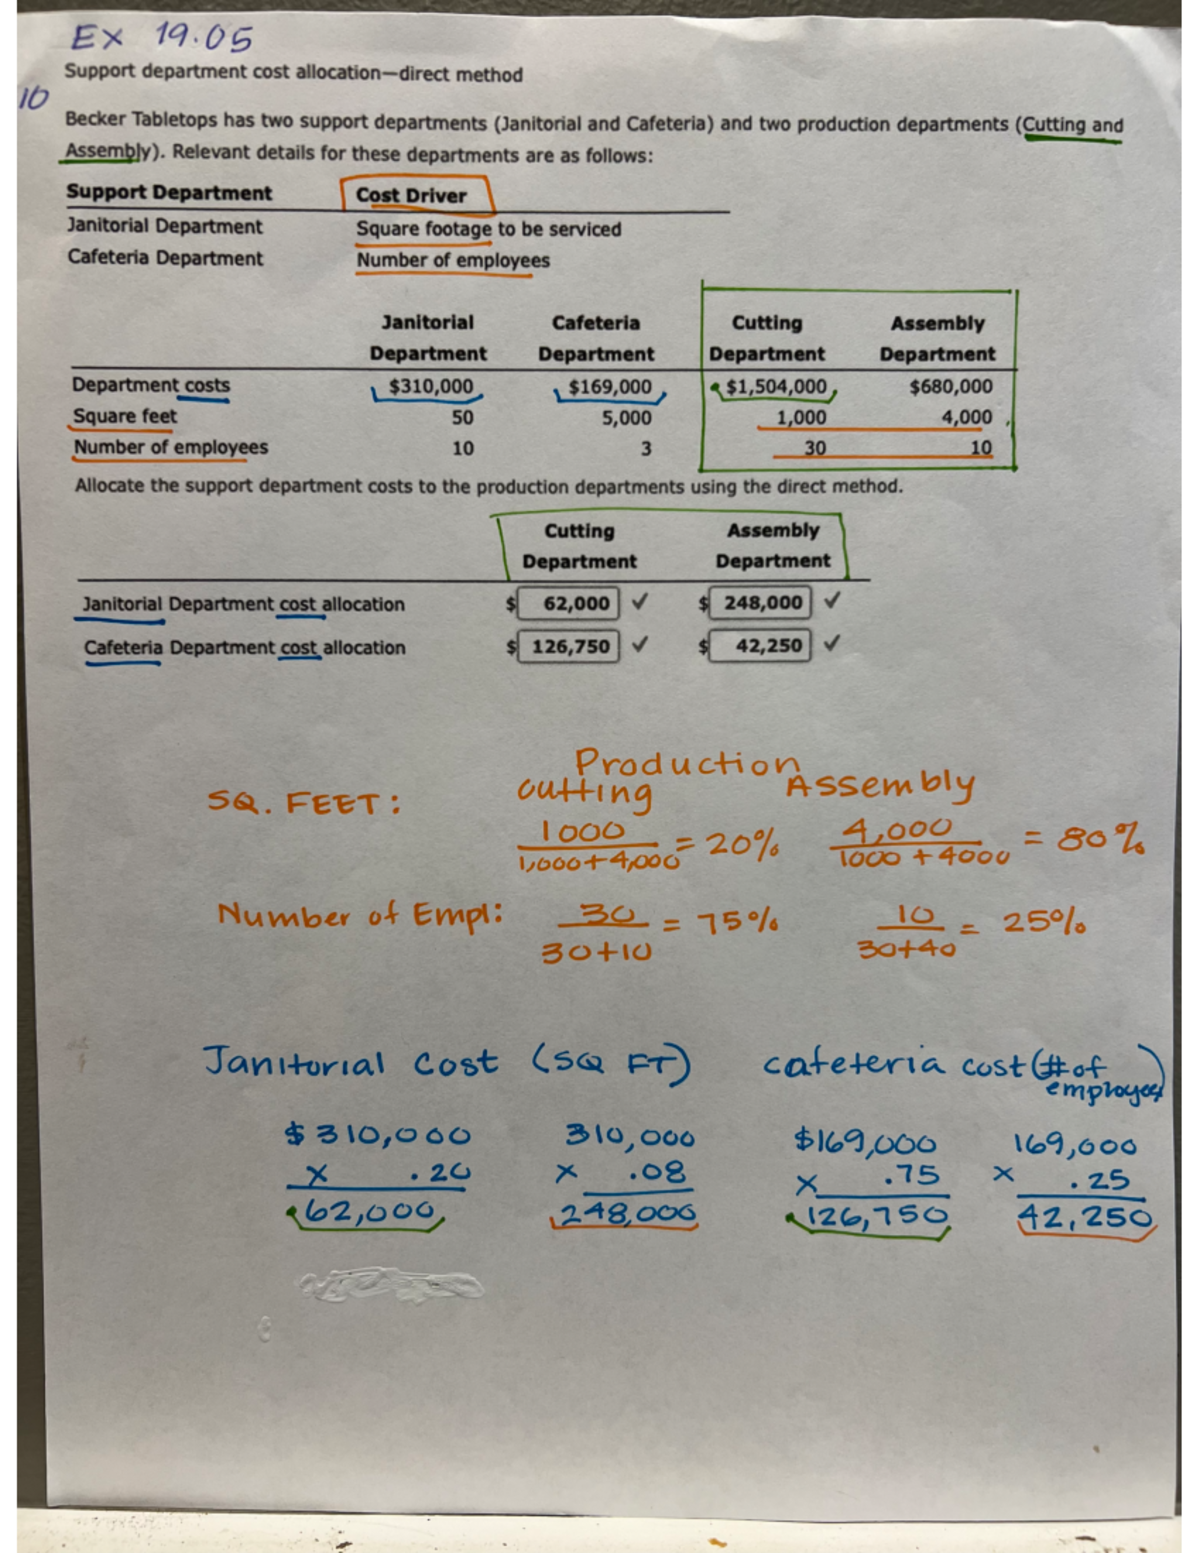 EX 19.05
Support department cost allocation—direct method
10
Becker Tabletops has two support departments (Janitorial and Cafeteria) and two production departments (Cutting and
Assembly). Relevant details for these departments are as follows:
Support Department Cost Driver
Janitorial Department Square footage to be serviced
Cafeteria Department Number of employees
Janitorial Cafeteria Cutting Assembly
Department Department Department Department
Department costs $310,000 $169,000 $1,504,000 $680,000
Square feet 50 5,000 1,000 4,000
Number of employees 10 3 30 10
Allocate the support department costs to the production departments using the direct method.
Cutting Assembly
Department Department
Janitorial Department cost allocation $ 62,000 ✓ $ 248,000 ✓
Cafeteria Department cost allocation $ 126,750 ✓ $ 42,250 ✓
Production
SQ. FEET: cutting Assembly
1000 / 1,000+4,000 = 20% 4,000 / 1000 + 4000 = 80%
Number of Empl: 30 / 30+10 = 75% 10 / 30+40 = 25%
Janitorial cost (SQ FT) cafeteria cost (# of
employees)
$310,000 310,000 $169,000 169,000
x .20 x .08 x .75 x .25
62,000 248,000 126,750 42,250